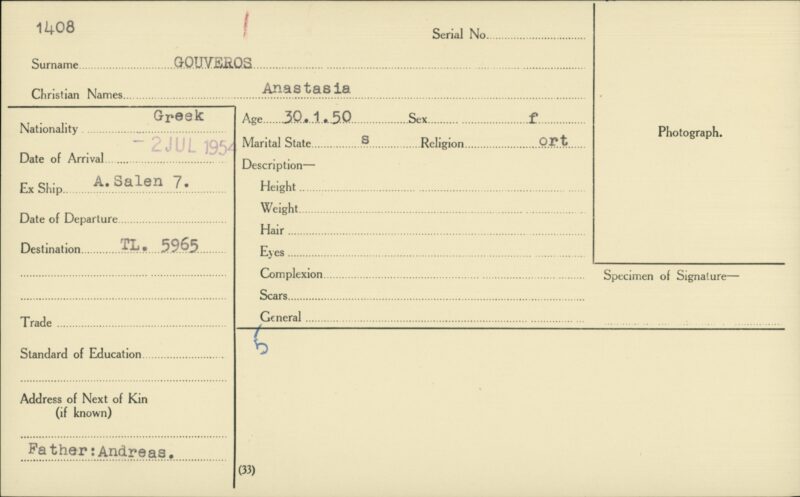 1408
Serial No.
Surname GOUVEROS
Christian Names Anastasia
Nationality Greek
Date of Arrival - 2 JUL 1954
Ex Ship A. Salen 7.
Date of Departure
Destination TL. 5965
Trade
Standard of Education
Address of Next of Kin
(if known)
Father: Andreas.
Age 30.1.50 Sex f
Marital State s Religion ort
Description—
Height
Weight
Hair
Eyes
Complexion
Scars
General
5
(33)
Photograph.
Specimen of Signature—